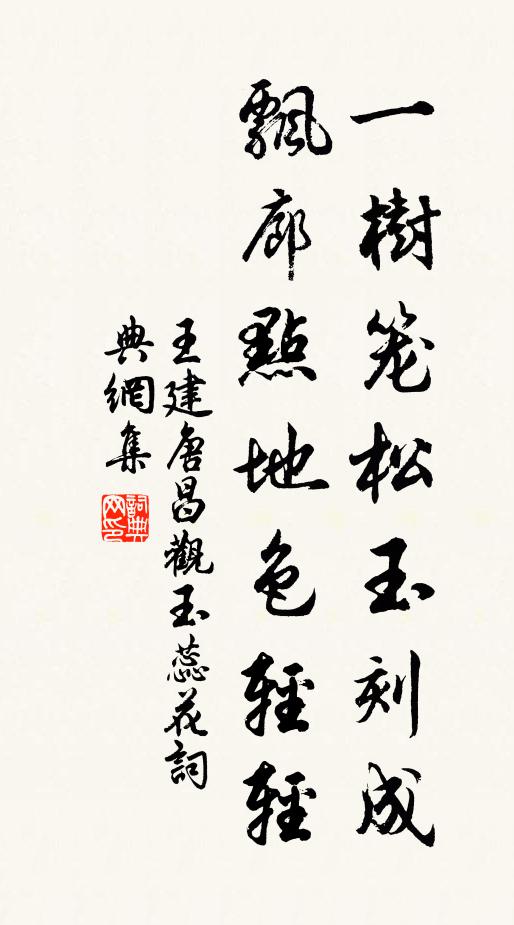 一樹笼松玉刻成
飄廊點地色輕輕
王建唐昌觀玉蕊花詞
典網集
詞典
网印